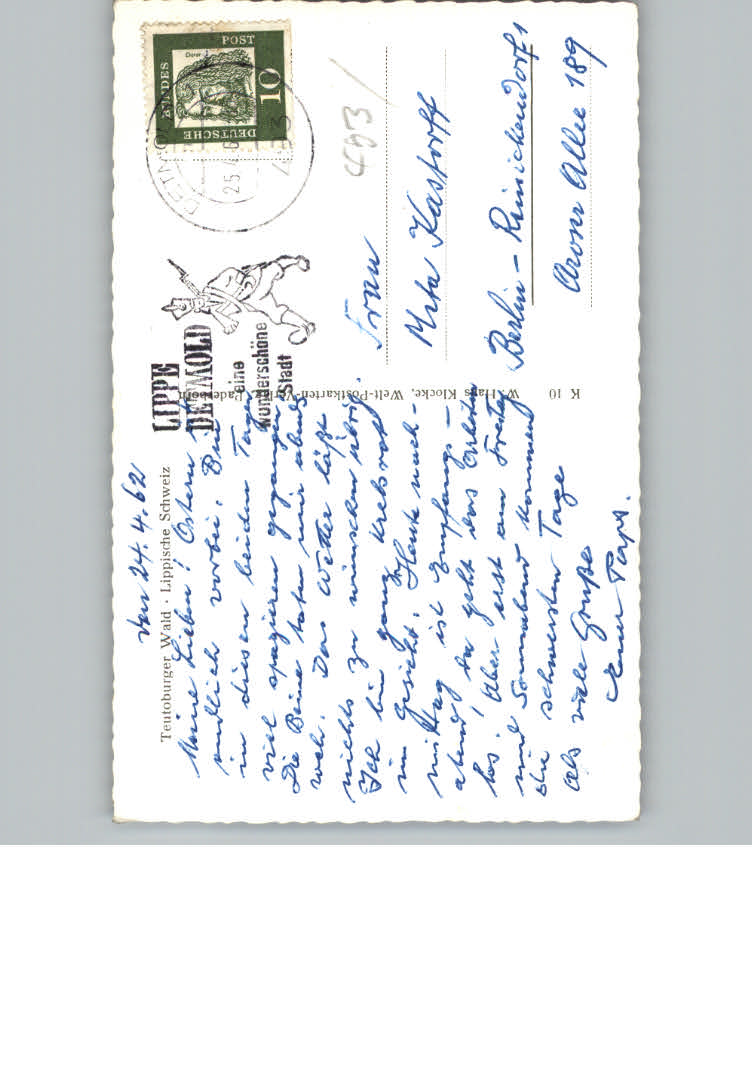 Teutoburger Wald · Lippische Schweiz
den 24.4.62
Meine Lieben! Ostern
endlich vorbei. Bin
in diesen beiden Tagen
viel spazieren gegangen
Die Beine taten mir abends
weh. Das Wetter läßt
nichts zu wünschen übrig.
Ich bin ganz krebsrot
im Gesicht. Heute nach-
mittag ist Empfangs-
abend, da geht das
los! Aber erst am Freitag
und Sonnabend kommen
die schwersten Tage
Als viele Grüße
Euer
K 10 W. Hans Klocke, Welt-Postkarten-Verlag, Paderborn
LIPPE
DETMOLD
eine
wunderschöne
Stadt
DETMOLD
25.4.6
493
DEUTSCHE
BUNDES
POST
10
493
Frau
Meta Kastorff
Berlin-Reinickendorf 1
Aroser Allee 189